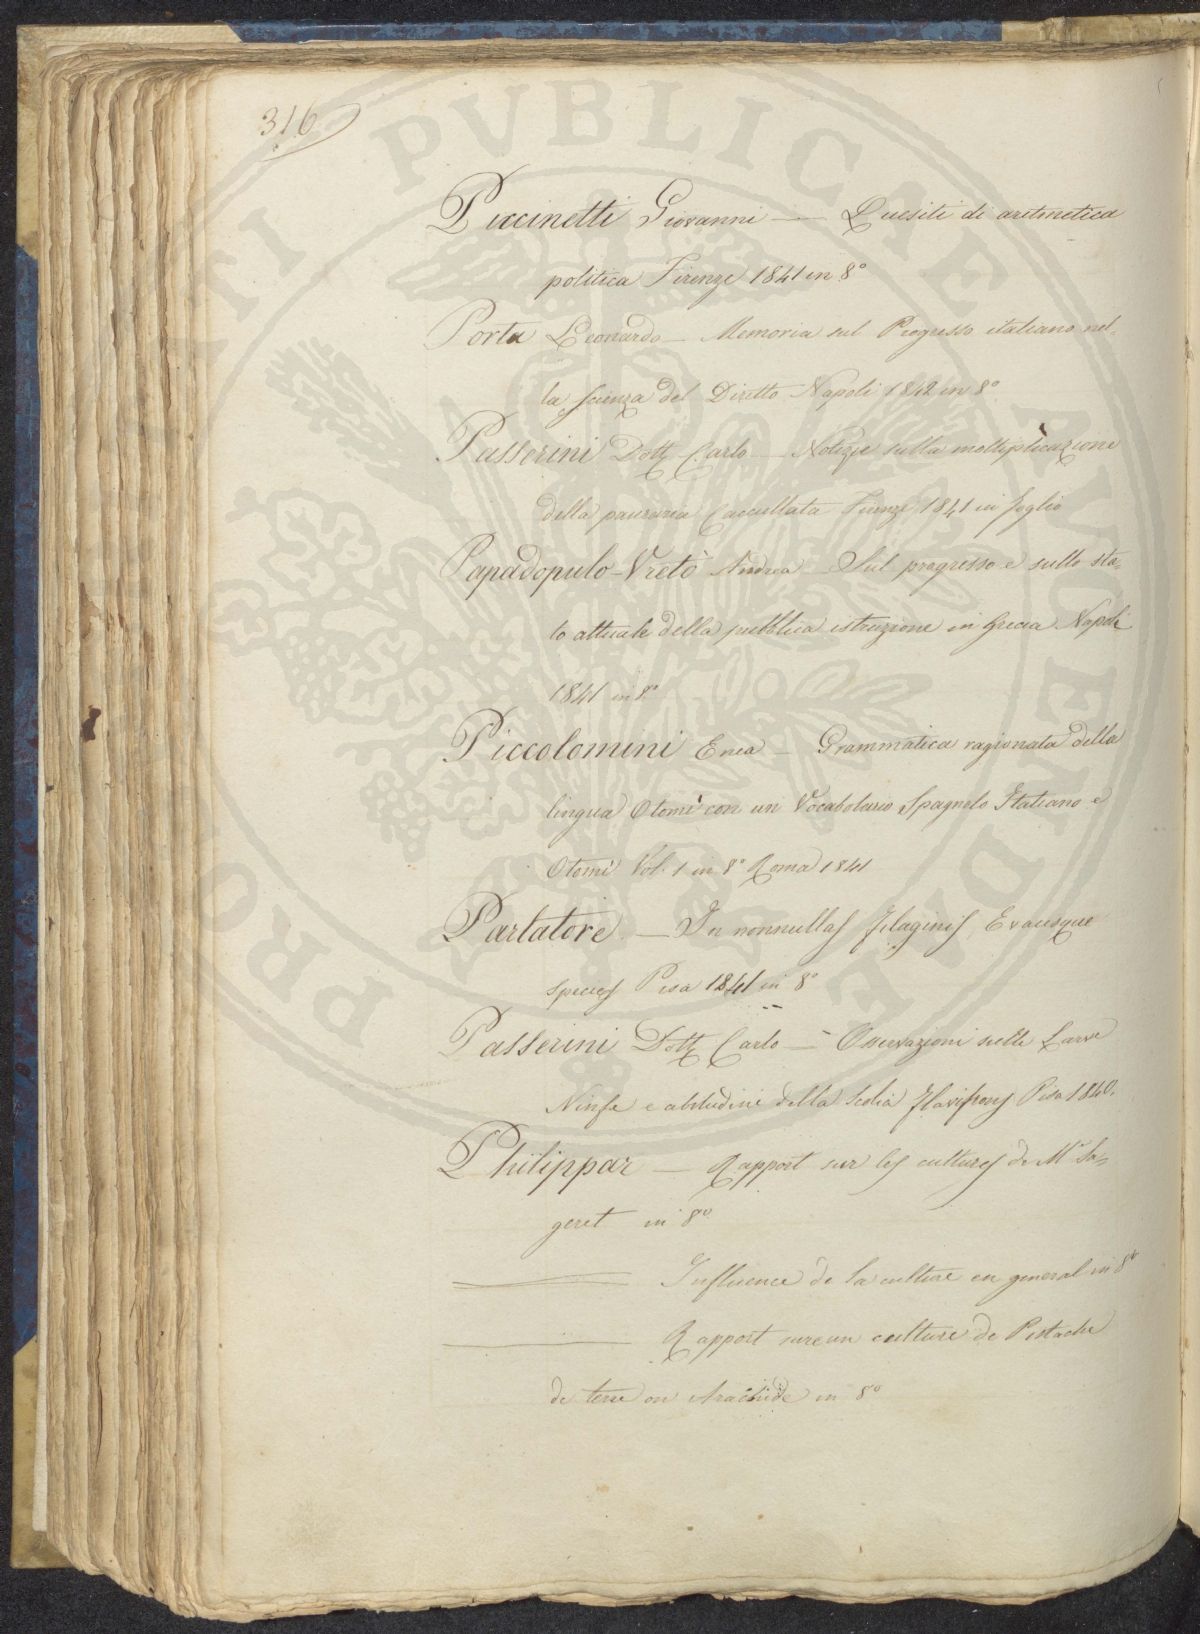 316
Puccinetti Giovanni — Quesiti di aritmetica
politica Firenze 1841 in 8°
Porta Leonardo — Memoria sul Progresso italiano nel-
la scienza del Diritto Napoli 1842 in 8°.
Passerini Dott Carlo — Notizie sulla moltiplicazione
della Caccullata Firenze 1841 in foglio
Papadopulo-Vretò Andrea — Sul progresso e sullo sta-
to attuale della pubblica istruzione in Grecia Napoli
1841 in 8°
Piccolomini Enea — Grammatica ragionata della
lingua Otomì con un Vocabolario Spagnolo Italiano e
Otomì Vol. 1 in 8° Roma 1841
Parlatore — In nonnullas filaginis, Evacisque
species Pisa 1841 in 8°
Passerini Dott Carlo — Osservazioni sulle Larve
Ninfe e abitudini della Scolia flavifrons Pisa 1840.
Philippar — Rapport sur les cultures de Mr Sa-
geret in 8°
Influence de la culture en general in 8°
Rapport sur un culture de Pistache
de terre ou Arachide in 8°
PROSPERITATI PVBLICAE AVGENDAE